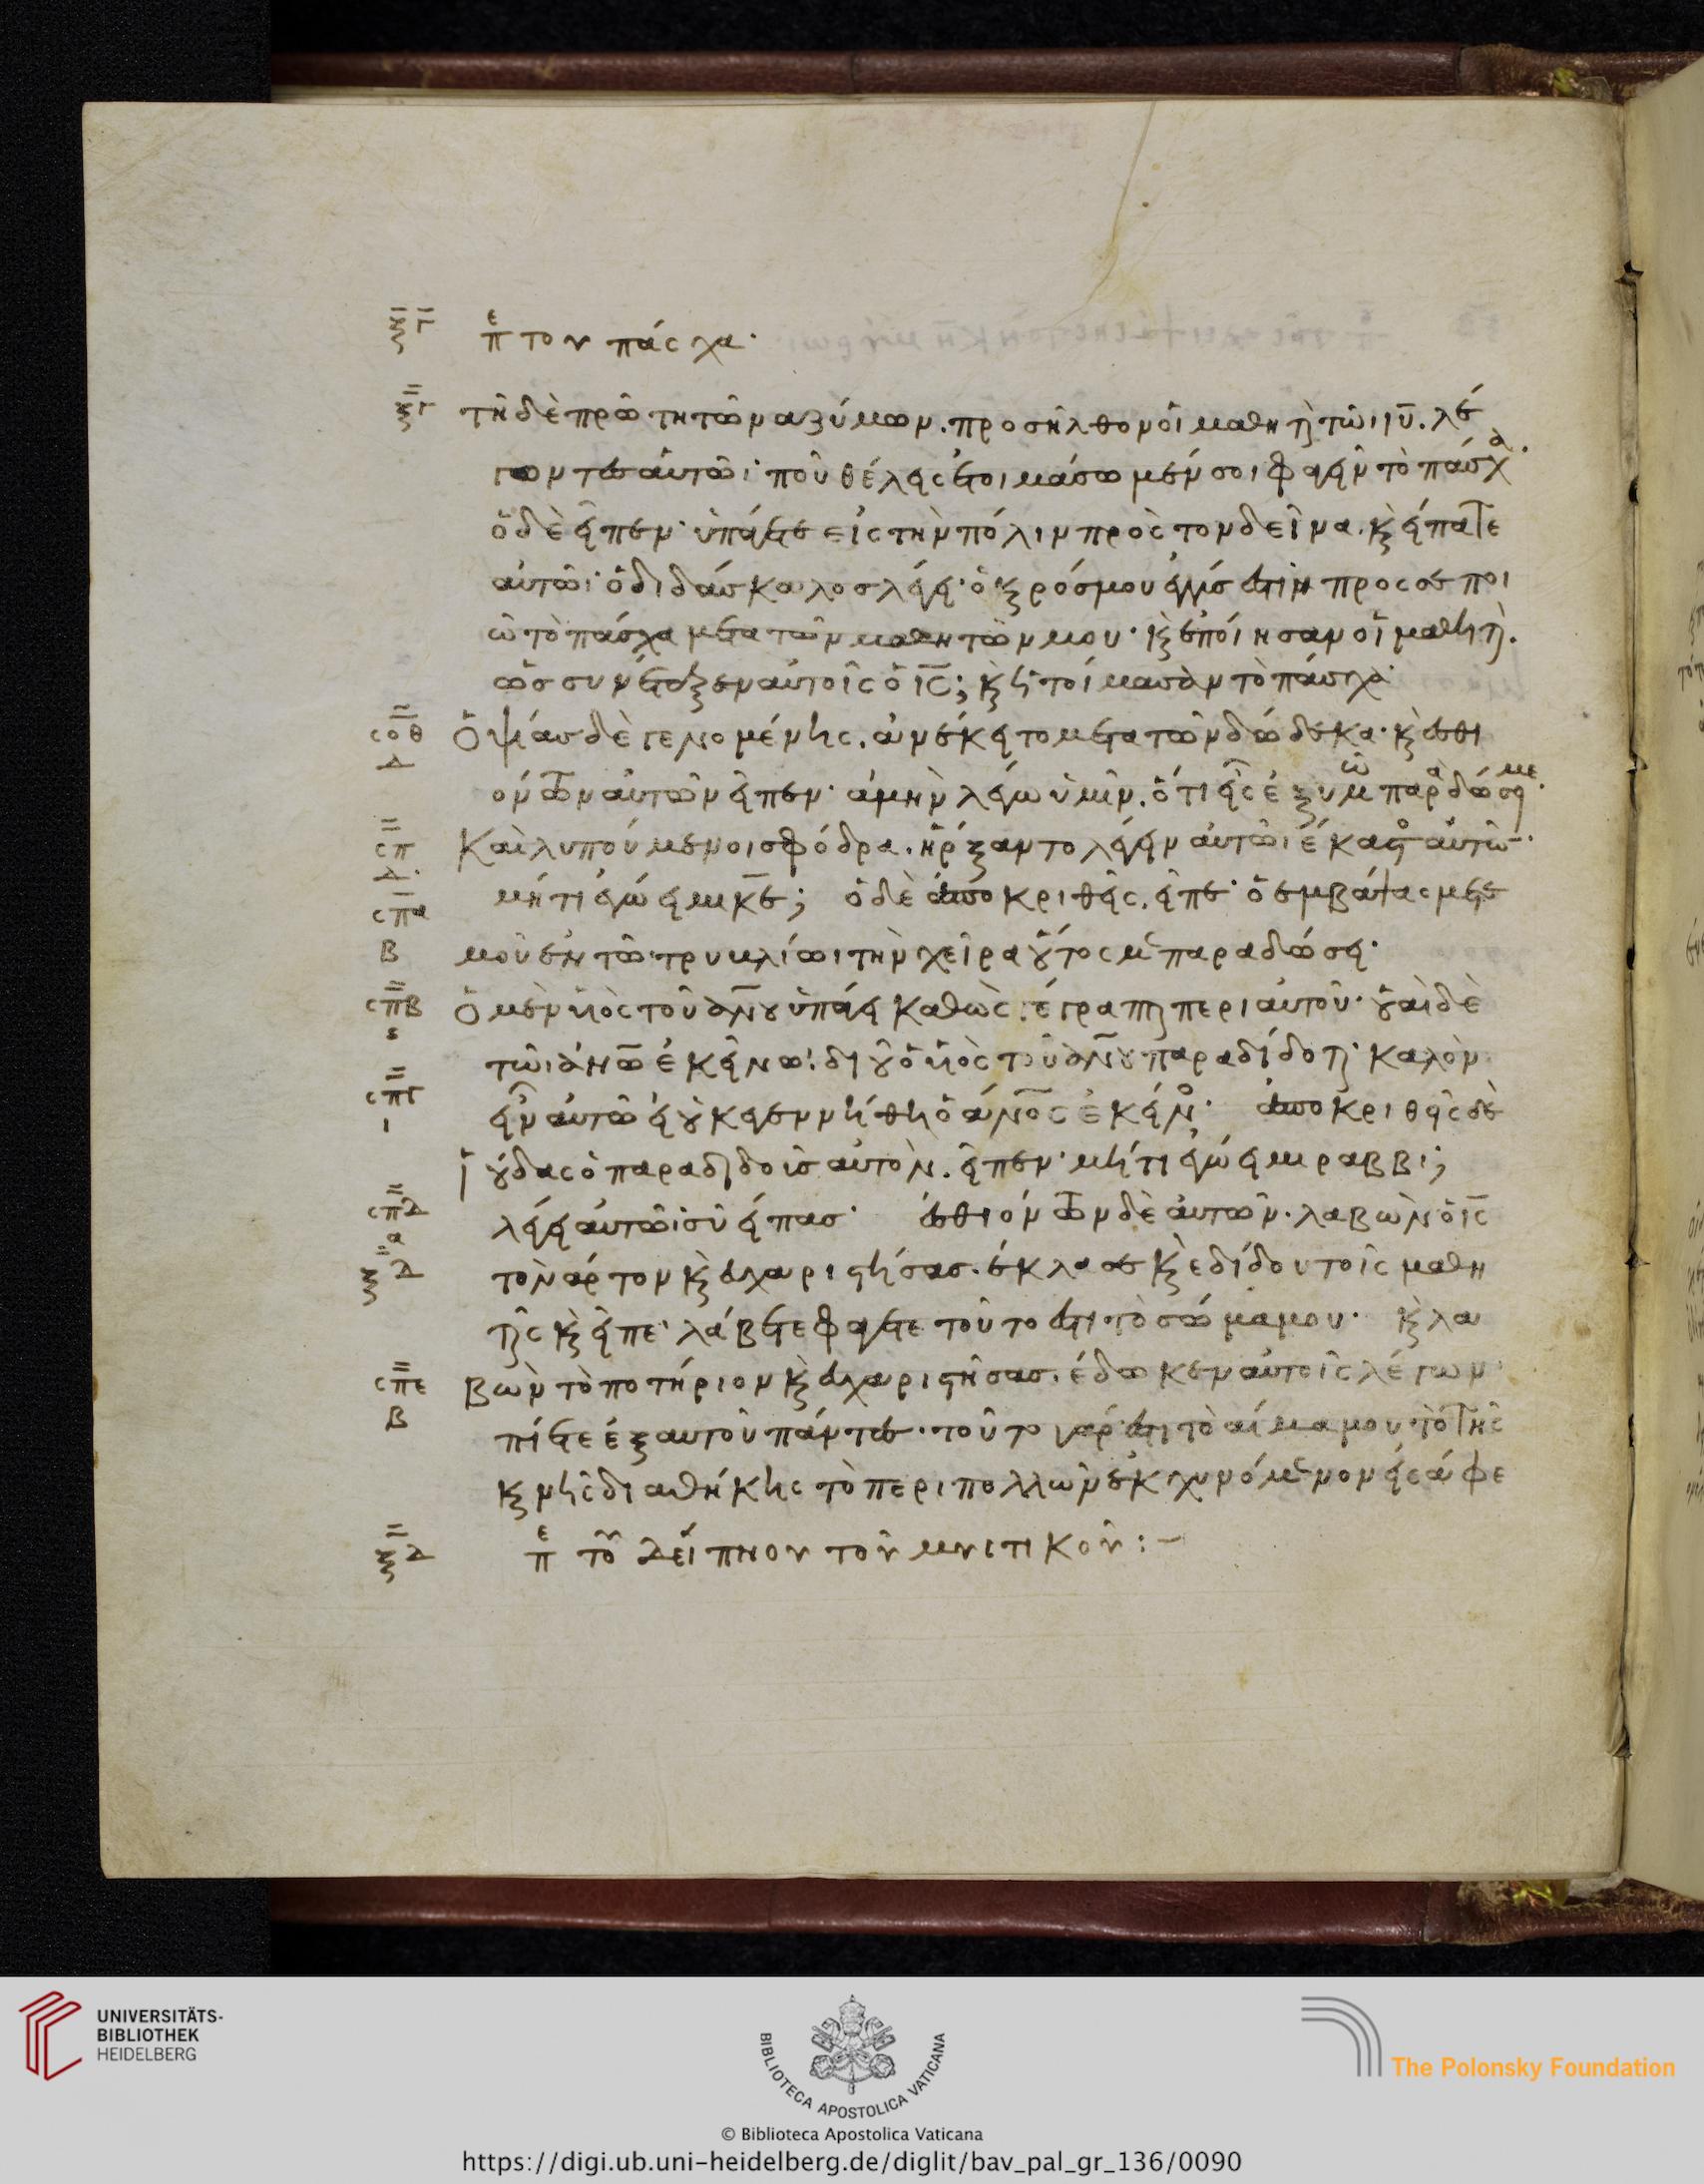 ξγ πε τον πάσχα·
ξγ τῆ δὲ πρώτη τῶν αζύμων. προσῆλθον οἱ μαθητὲ τῶι ιυ. λέ
γοντες αὐτῶι· ποῦ θέλεις ἑτοιμάσωμέν σοι φαγεῖν τὸ πάσχα·
ὁ δὲ εἶπεν· ὑπάγετε εἰς τὴν πόλιν πρὸς τον δεῖνα. κὲ είπατε
αὐτῶι· ὁ διδάσκαλοσ λέγει· ὁ κερόσ μου εγγύσ εστιν προς σε ποι
ῶ τὸ πάσχα μετα τῶν μαθητῶν μου· κὲ εποίησαν οἱ μαθητὲ.
ὡσ συνέταξεν αὐτοῖς ὁ ισ; κὲ ητοίμασαν τὸ πάσχα·
σοθ Ὀψίασ δὲ γενομένης. ἀνέκειτο μετα τῶν δώδεκα· κὲ εσθι
δ όντων αὐτῶν εἶπεν· ἀμὴν λέγω ὑμῖν. ὅτι εἷς ἐξ υμῶ παραδώσει με·
σπ Καὶ λυπούμενοι σφόδρα. ἤρξαντο λέγειν αυτῶι έκαστο αὐτῶ·
δ· μήτι εγώ ειμι κε; ὁ δὲ αποκριθεῖς. εἶπε· ὁ εμβάψας μετ ε
σπα
β μοῦ εν τῶ τρυκλίωι τὴν χεῖρα οὗτος με παραδώσει·
σπβ Ὁ μὲν υιὸς τοῦ ανου ὑπάγει καθὼς. έγραπτε περι αυτοῦ· ουαὶ δὲ
ς τῶι ἀνω εκείνω! δι οῦ ὁ υιὸς τοῦ ανου παραδίδοτε· καλὸν
σπγ
ι εἶν αυτῶ ει οὐκ εγεννήθη ὁ ἀνος ἐκεῖνο· αποκριθεὶς δὲ
ϊούδας ὁ παραδιδοὶσ αὐτὸν. εἶπεν· μήτι εγώ ειμι ραββι;
σπδ λέγει αυτῶι· σὺ είπασ· εσθιόντων δὲ αὐτῶν. λαβὼν ὁ ισ
α
ξδ τὸν άρτον κὲ ευχαριστήσασ. έκλασε κὲ εδίδου τοῖς μαθη
τὲς κὲ εἶπε· λάβετε φάγετε τοῦτο εστι τὸ σῶμα μου· κὲ λα
σπε βὼν τὸ ποτήριον κὲ ευχαριστῆσασ. έδωκεν αὐτοῖς λέγων·
β πίετε έξ αυτοῦ πάντεσ. τοῦτο γάρ εστι τὸ αίμα μου τὸ τῆς
κενῆς διαθήκης τὸ περι πολλῶν εκχυνόμενον είς άφε
ξδ πε τοῦ δείπνον τοῦ μυστικοῦ:—
UNIVERSITÄTS-
BIBLIOTHEK
HEIDELBERG
BIBLIOTECA APOSTOLICA VATICANA
The Polonsky Foundation
© Biblioteca Apostolica Vaticana
https://digi.ub.uni-heidelberg.de/diglit/bav_pal_gr_136/0090